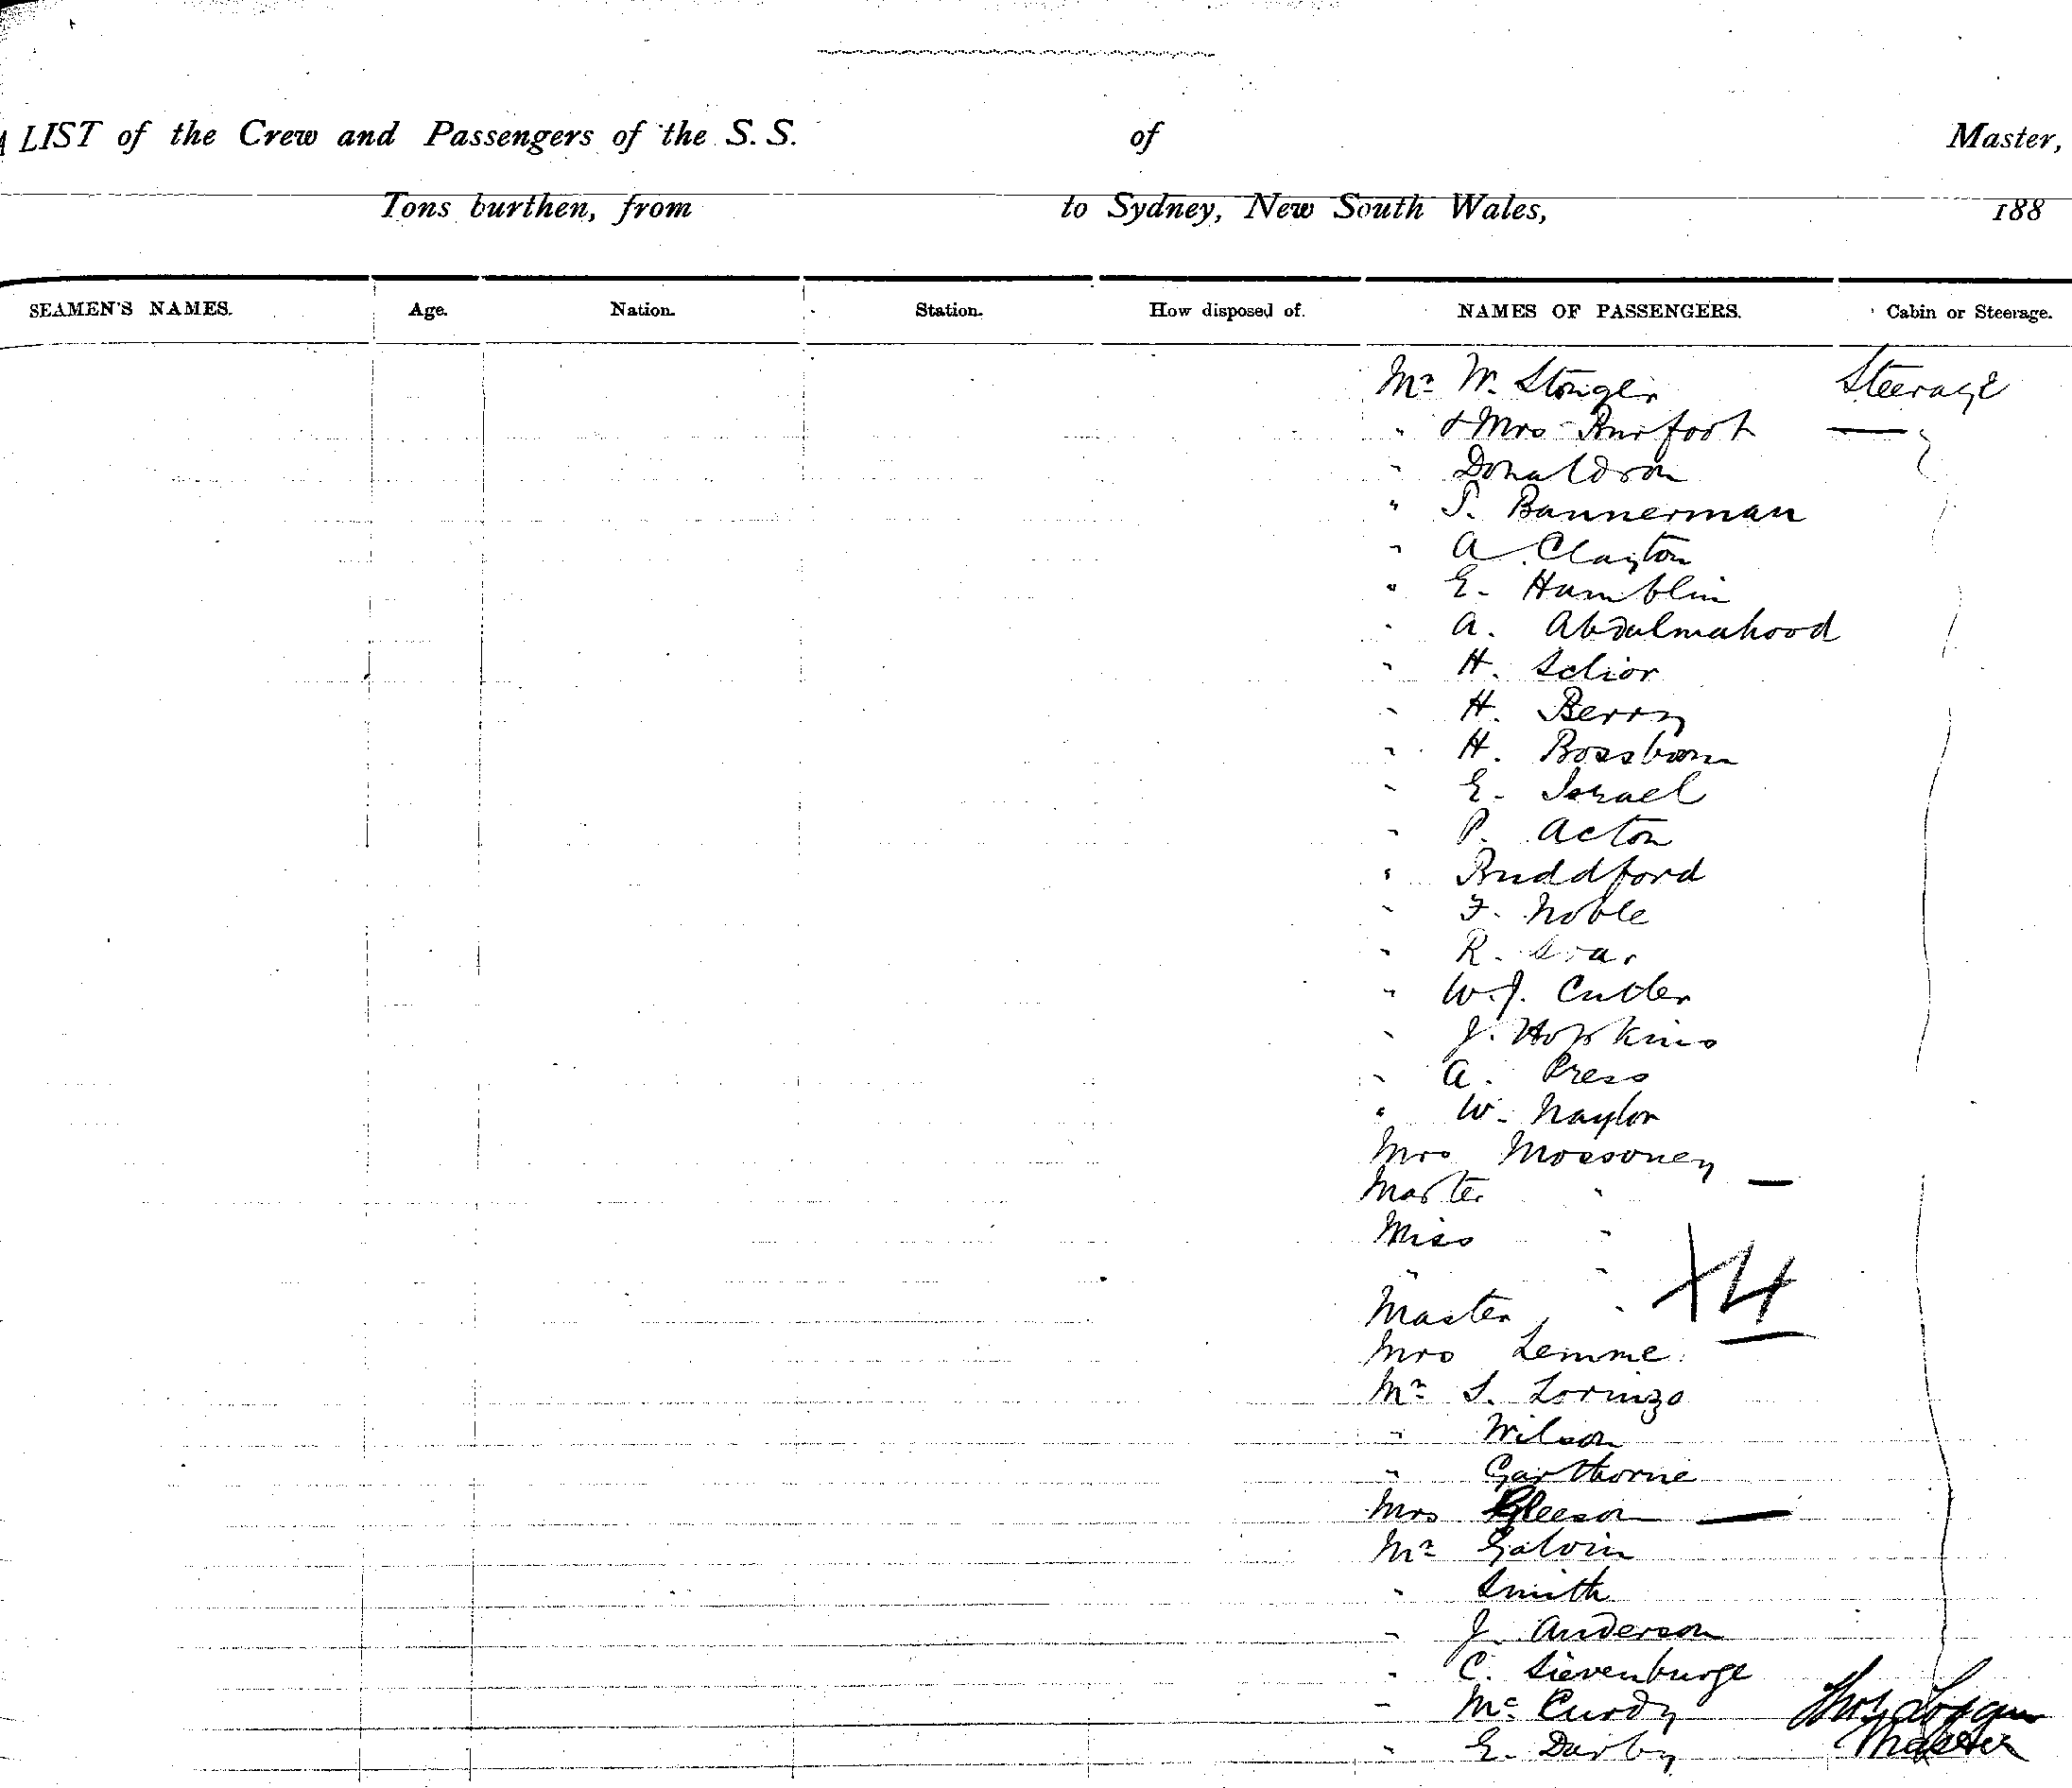 A LIST of the Crew and Passengers of the S.S. of Master,
Tons burthen, from to Sydney, New South Wales, 188
SEAMEN'S NAMES. Age. Nation. Station. How disposed of. NAMES OF PASSENGERS. Cabin or Steerage.
Mr W. Steerage
" & Mrs Burfoot —
" Donaldson
" S. Bannerman
" A. Clayton
" E. Hamblin
" A. Abdulmahood
" H. Selior
" H. Berry
" H. Bossbom
" E. Israel
" P. Acton
" Buddford
" F. Noble
" R.
" W.J. Cutler
" J. Hopkins
" A. Press
" W. Naylor
Mrs Mossoney —
Master "
Miss "
" " X4
Master "
Mrs Lemme
Mr S. Lorinzo
" Wilson
" Garthorne
Mrs Gleeson —
Mr Galvin
" Smith
" J. Anderson
" C. Sievenburge
" McCurdy Thos Logan
" E. Darby Master